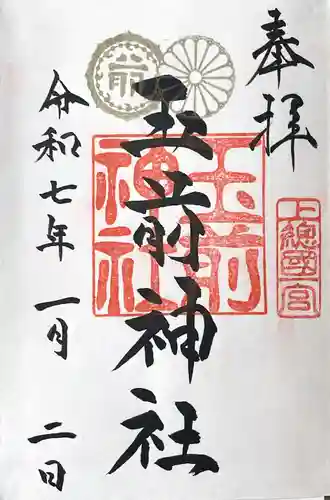 奉拝
上總國一宮
玉前神社
玉前神社
前
令和七年 一月 二日